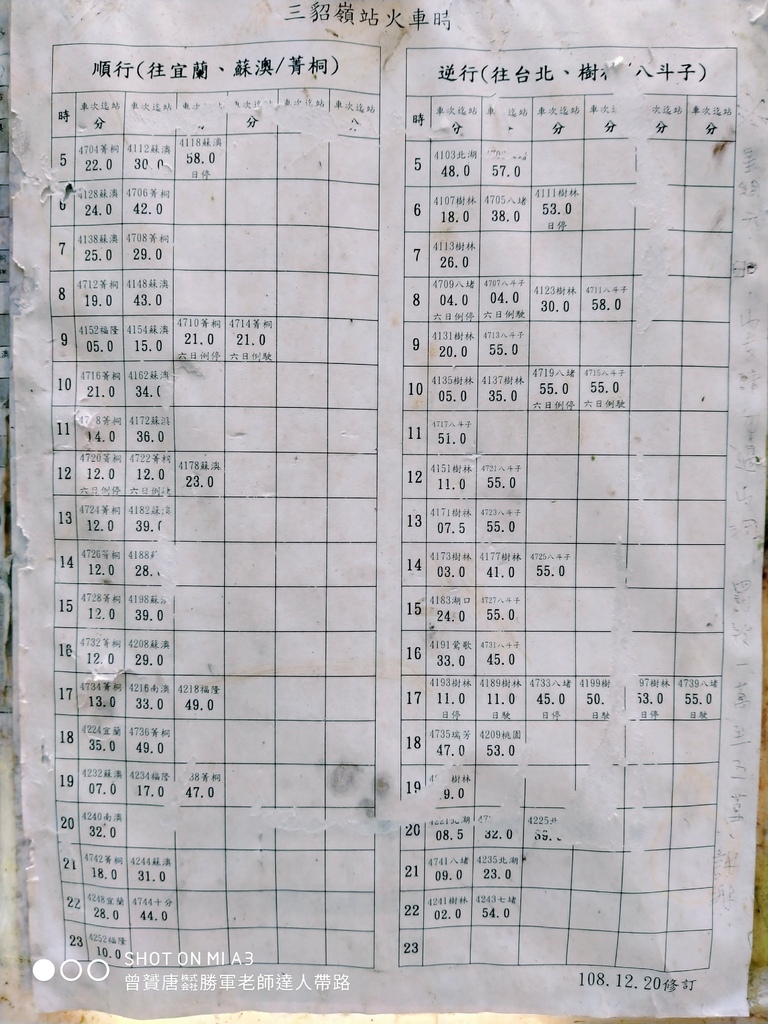 三貂嶺站火車時
順行(往宜蘭、蘇澳/菁桐)
時 車次迄站 車次迄站 車次 車次迄站 車次迄站 車次迄站
分 分
5 4704菁桐 4112蘇澳 4118蘇澳
22.0 30.0 58.0
日停
6 4128蘇澳 4706菁桐
24.0 42.0
7 4138蘇澳 4708菁桐
25.0 29.0
8 4712菁桐 4148蘇澳
19.0 43.0
9 4152福隆 4154蘇澳 4710菁桐 4714菁桐
05.0 15.0 21.0 21.0
六日例停 六日例駛
10 4716菁桐 4162蘇澳
21.0 34.0
11 菁桐 4172蘇澳
14.0 36.0
12 4720菁桐 4722菁桐 4178蘇澳
12.0 12.0 23.0
六日例停 六日例
13 4724菁桐 4182蘇澳
12.0 39.0
14 4726菁桐 4188
12.0 28.
15 4728菁桐 4198蘇
12.0 39.0
16 4732菁桐 4208蘇澳
12.0 29.0
17 4734菁桐 4216南澳 4218福隆
13.0 33.0 49.0
18 4224宜蘭 4736菁桐
35.0 49.0
19 4232蘇澳 4234福隆 38菁桐
07.0 17.0 47.0
20 4240南澳
32.0
21 4742菁桐 4244蘇澳
18.0 31.0
22 4248宜蘭 4744十分
28.0 44.0
23 4252福隆
10.0
逆行(往台北、樹 八斗子)
時 車次迄站 車次 迄站 車次迄站 車次迄 次迄站 車次迄站
分 分 分 分 分
5 4103北湖
48.0 57.0
6 4107樹林 4705八堵 4111樹林
18.0 38.0 53.0
日停
7 4113樹林
26.0
8 4709八堵 4707八斗子 4123樹林 4711八斗子
04.0 04.0 30.0 58.0
六日例停 六日例駛
9 4131樹林 4713八斗子
20.0 55.0
10 4135樹林 4137樹林 4719八堵 4715八斗子
05.0 35.0 55.0 55.0
六日例停 六日例駛
11 4717八斗子
51.0
12 4151樹林 4721八斗子
11.0 55.0
13 4171樹林 4723八斗子
07.5 55.0
14 4173樹林 4177樹林 4725八斗子
03.0 41.0 55.0
15 4183湖口 4727八斗子
24.0 55.0
16 4191鶯歌 4731八斗子
33.0 45.0
17 4193樹林 4189樹林 4733八堵 4199樹 97樹林 4739八堵
11.0 11.0 45.0 50. 53.0 55.0
日停 日駛 日駛 日停 日駛
18 4735瑞芳 4209桃園
47.0 53.0
19 樹林
9.0
20 4221北湖 4225北
08.5 32.0
21 4741八堵 4235北湖
09.0 23.0
22 4241樹林 4243七堵
02.0 54.0
23
108.12.20修訂
SHOT ON MI A3
曾贊唐 勝軍老師達人帶路